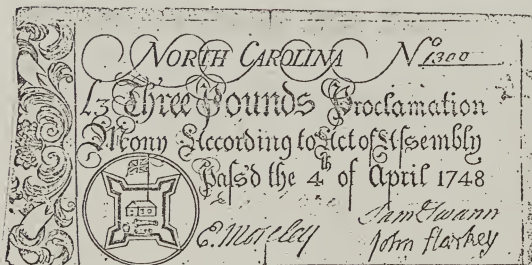 NORTH CAROLINA No 1300
£3 Three Pounds Proclamation
Mony According to Act of Assembly
Pass'd the 4th of April 1748
E. Moseley
Sam Swann
John Starkey